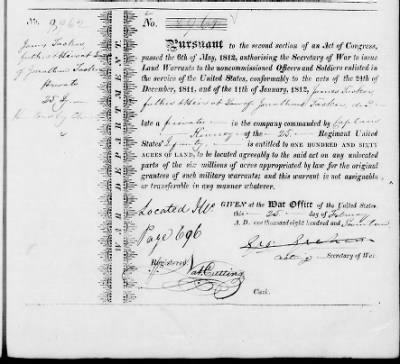 No. 8,962
No. 8962
James Tucker
father & heir at Law
of Jonathan Tucker
Private
25
WAR DEPARTMENT
Pursuant to the second section of an Act of Congress,
passed the 6th of May, 1812, authorising the Secretary of War to issue
Land Warrants to the noncommissioned Officers and Soldiers enlisted
in the service of the United States, conformably to the acts of the 24th of
December, 1811, and of the 11th of January, 1812, James Tucker
father & heir at Law of Jonathan Tucker dec'd
late a private in the company commanded by Captain
Kinney of the 25 Regiment United
States Infantry is entitled to ONE HUNDRED AND SIXTY
ACRES OF LAND, to be located agreeably to the said act on any unlocated
parts of the six millions of acres appropriated by law for the original
grantees of such military warrants; and this warrant is not assignable
or transferable in any manner whatever.
Located Ills.
Page 696
GIVEN at the War Office of the United States
this 25 day of February
A. D. one thousand eight hundred and
Secretary of War.
Registered,
Nat. Cutting
Clerk.